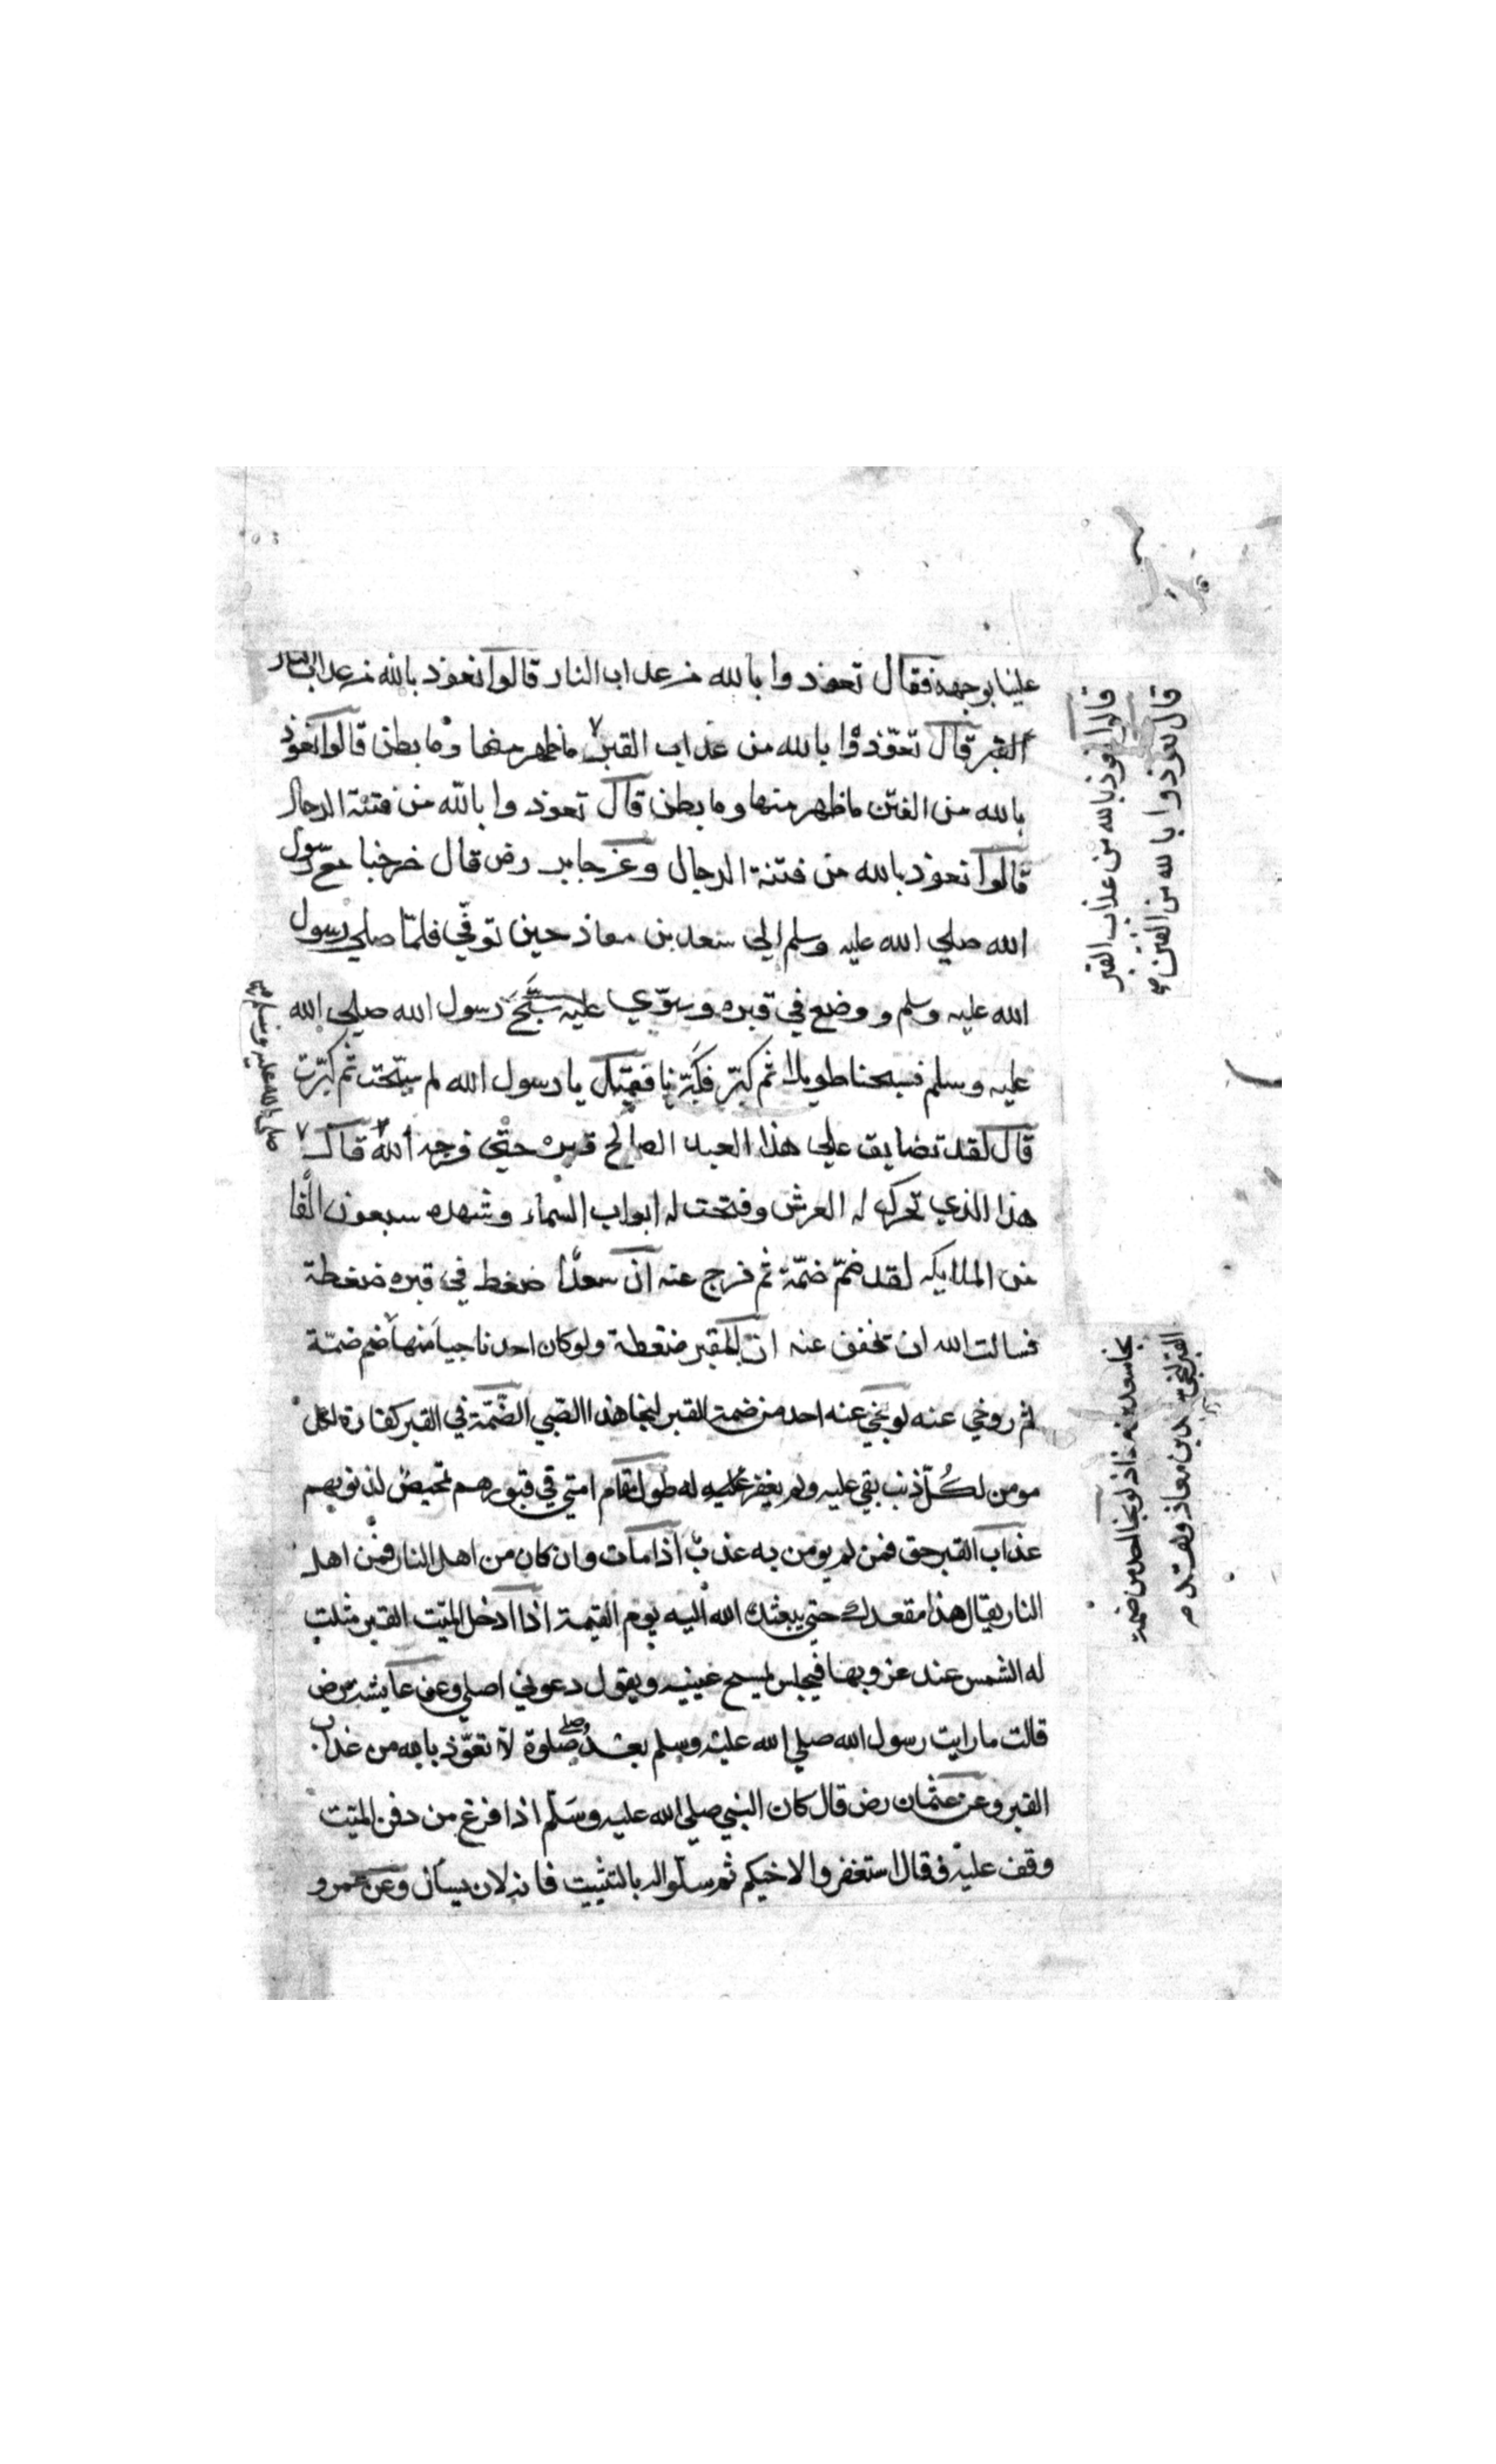 علينا بوجهه فقال تعوذوا بالله من عذاب النار قالوا نعوذ بالله من عذاب النار
القبر قال تعوّذوا بالله من عذاب القبر ما ظهر منها وما بطن قالوا نعوذ
بالله من الفتن ما ظهر منها وما بطن قال تعوذوا بالله من فتنة الدجال
قالوا نعوذ بالله من فتنة الدجال وعن جابر رض قال خرجنا مع رسول
الله صلي الله عليه وسلم الي سعد بن معاذ حين توفّي فلمّا صلي رسول
الله عليه وسلم و وضع في قبره وسوّي عليه سبّح رسول الله صلي الله
عليه وسلم فسبحنا طويلا ثم كبّر فكبّرنا فقيل يا رسول الله لم سبّحت ثم كبّرت
قال لقد تضايق علي هذا العبد الصالح قبره حتي فرجه الله قال
هذا الذي تحرك له العرش وفتحت له ابواب السماء وشهده سبعون الفا
من الملايكه لقد ضمّ ضمّة ثم فرج عنه ان سعدًا ضغط في قبره ضغطة
فسالت الله ان يخفف عنه ان للقبر ضغطة ولو كان احد ناجيا منها ضم ضمّة
ثم روخي عنه لو نجي عنه احد من ضمة القبر لنجا هذا الصّبي الضّمّة في القبر كفارة لكل
مومن لكُلّ ذنب بقي عليه ولم يغفر له طول مقام امتي في قبورهم تمحيص لذنوبهم
عذاب القبر حق فمن لم يومن به عذب اذا مات وان كان من اهل النار فمن اهل
النار يقال هذا مقعدك حتي يبعثك الله اليه يوم القيمة اذا ادخل الميّت القبر مثلت
له الشمس عند غروبها فيجلس يمسح عينيه ويقول دعوني اصلي وعن عايشة رض
قالت ما رايت رسول الله صلي الله عليه وسلم بعد صلي صلوة لا تعوّذ بالله من عذاب
القبر وعن عثمان رض قال كان النبي صلي الله عليه وسلم اذا فرغ من دفن الميّت
وقف عليه فقال استغفروا لاخيكم ثم سلوا له بالتثبيت فانه لان يسأل وعن عمرو
قالوا نعوذ بالله من عذاب القبر
قال تعوذوا بالله من الفتن
صلي الله عليه وسلم
لو نجا احد من ضمة
القبر لنجي سعد بن معاذ ولقد